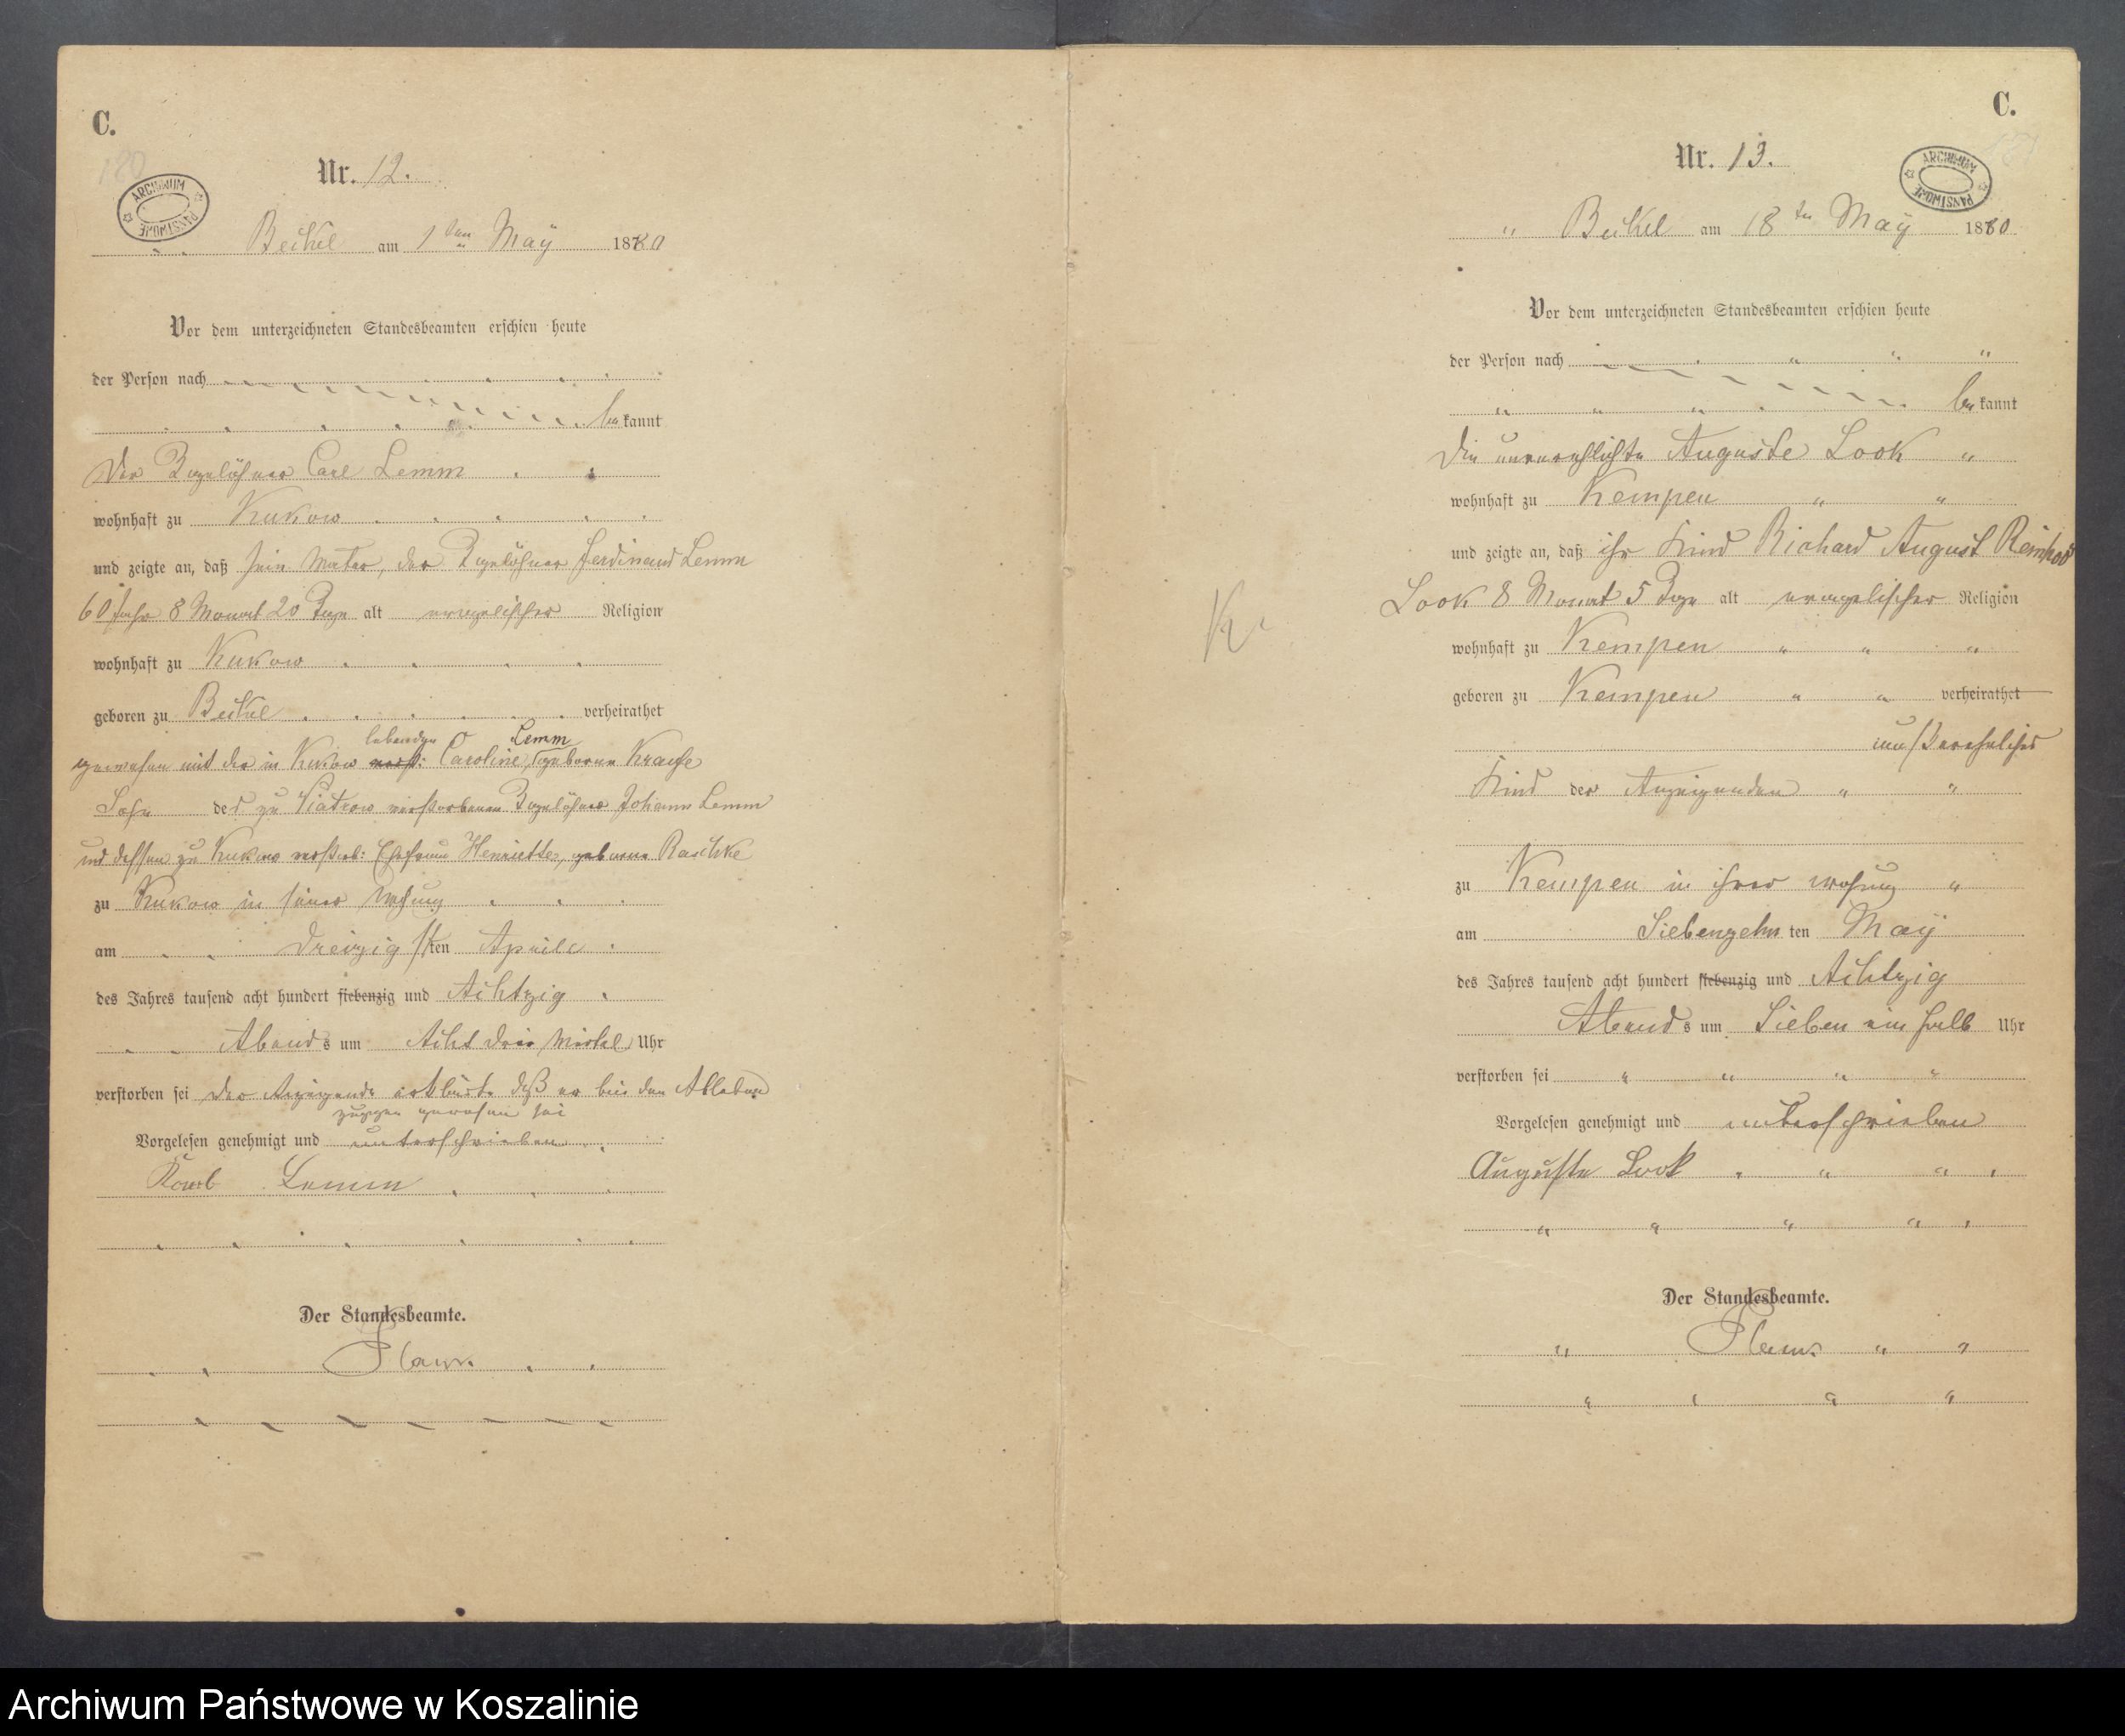 C.
Nr. 12.
ARCHIWUM PAŃSTWOWE
Beikel am 1ten May 1880
Vor dem unterzeichneten Standesbeamten erschien heute
der Person nach
bekannt
Der Tagelöhner Carl Lemm
wohnhaft zu Kukow
und zeigte an, daß sein Vater, der Tagelöhner Ferdinand Lemm
60 Jahr 8 Monat 20 Tage alt evangelischer Religion
wohnhaft zu Kukow
geboren zu Beikel verheirathet
lebenden Lemm
gewesen mit der in Kukow verst: Caroline, geborene Krause
Sohn des zu Viatrow verstorbenen Tagelöhner Johann Lemm
und dessen zu Kukow verstorb: Ehefrau Henriette, geborne Raschke
zu Kukow in seiner Wohnung
am dreizigsten Aprill
des Jahres tausend acht hundert siebenzig und Achtzig
Abends um Acht drei Viertel Uhr
verstorben sei der Anzeigende erklärte daß er bei den Ableben
zugegen gewesen sei
Vorgelesen genehmigt und unterschrieben
Lemm
Der Standesbeamte.
C.
Nr. 13.
ARCHIWUM PAŃSTWOWE
Beikel am 18ten May 1880
Vor dem unterzeichneten Standesbeamten erschien heute
der Person nach
bekannt
Die unverehlichte Auguste Look
wohnhaft zu Kempen
und zeigte an, daß ihr Kind Richard August Reinhod
Look 8 Monat 5 Tage alt evangelischer Religion
K
wohnhaft zu Kempen
geboren zu Kempen verheirathet
Kind der Anzeigenden
zu Kempen in ihrer Wohung
am Siebenzehnten May
des Jahres tausend acht hundert siebenzig und Achtzig
Abends um Sieben ein halb Uhr
verstorben sei
Vorgelesen genehmigt und unterschrieben
Auguste Look
Der Standesbeamte.
Archiwum Państwowe w Koszalinie